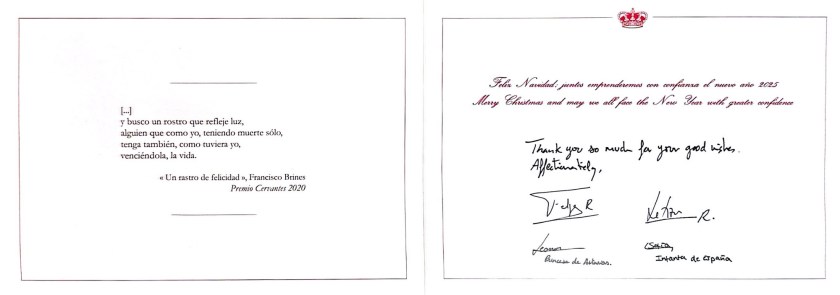 [...]
y busco un rostro que refleje luz,
alguien que como yo, teniendo muerte sólo,
tenga también, como tuviera yo,
venciéndola, la vida.
« Un rastro de felicidad », Francisco Brines
Premio Cervantes 2020
Feliz Navidad: juntos emprenderemos con confianza el nuevo año 2025
Merry Christmas and may we all face the New Year with greater confidence
Thank you so much for your good wishes.
Affectionately,
Felipe R Letizia R.
Leonor Sofía
Princesa de Asturias. Infanta de España